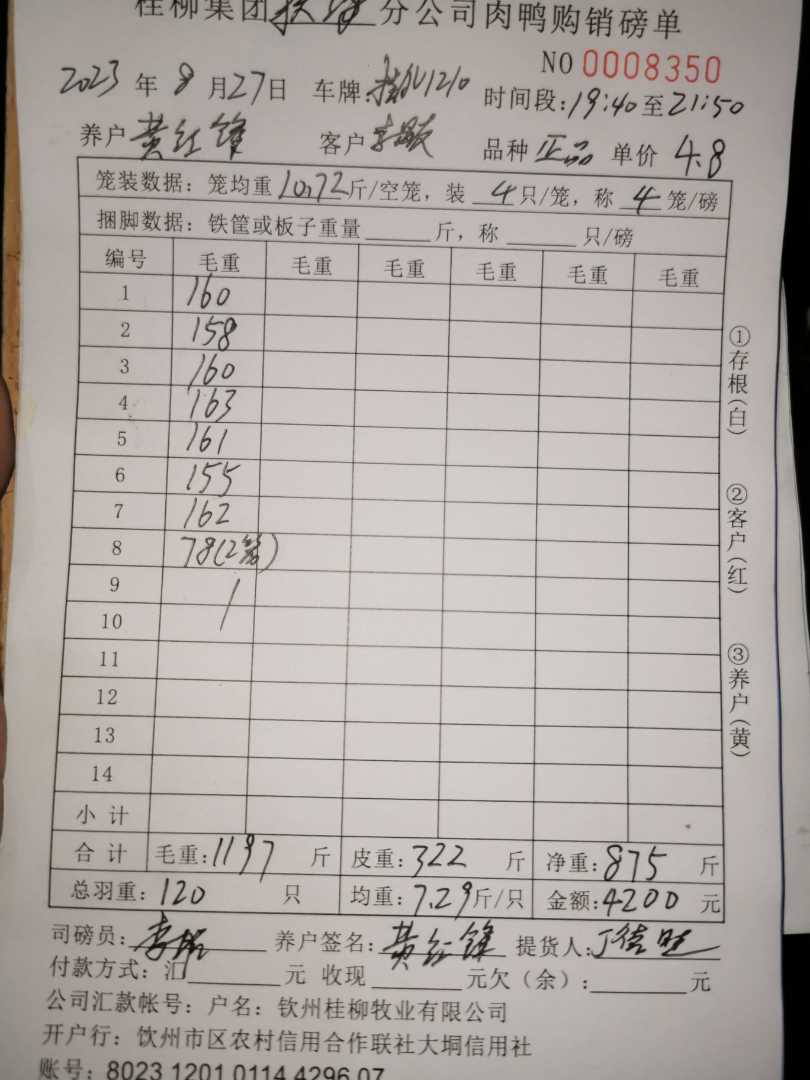 桂柳集团 分公司肉鸭购销磅单
NO 0008350
2023 年 8 月 27 日 车牌: 1210 时间段: 19:40 至 21:50
养户 黄红锋 客户 李 品种 正品 单价 4.8
笼装数据: 笼均重 10.72 斤/空笼, 装 4 只/笼, 称 4 笼/磅
捆脚数据: 铁筐或板子重量 斤, 称 只/磅
编号 毛重 毛重 毛重 毛重 毛重 毛重
1 160
2 158
3 160
4 163
5 161
6 155
7 162
8 78(2笼)
9
10
11
12
13
14
小 计
合 计 毛重: 1197 斤 皮重: 322 斤 净重: 875 斤
总羽重: 120 只 均重: 7.29 斤/只 金额: 4200 元
司磅员: 李 养户签名: 黄红锋 提货人: 丁德旺
付款方式: 汇 元 收现 元欠(余): 元
公司汇款帐号: 户名: 钦州桂柳牧业有限公司
开户行: 钦州市区农村信用合作联社大垌信用社
账号: 8023 1201 0114 4296 07
①存根(白)
②客户(红)
③养户(黄)